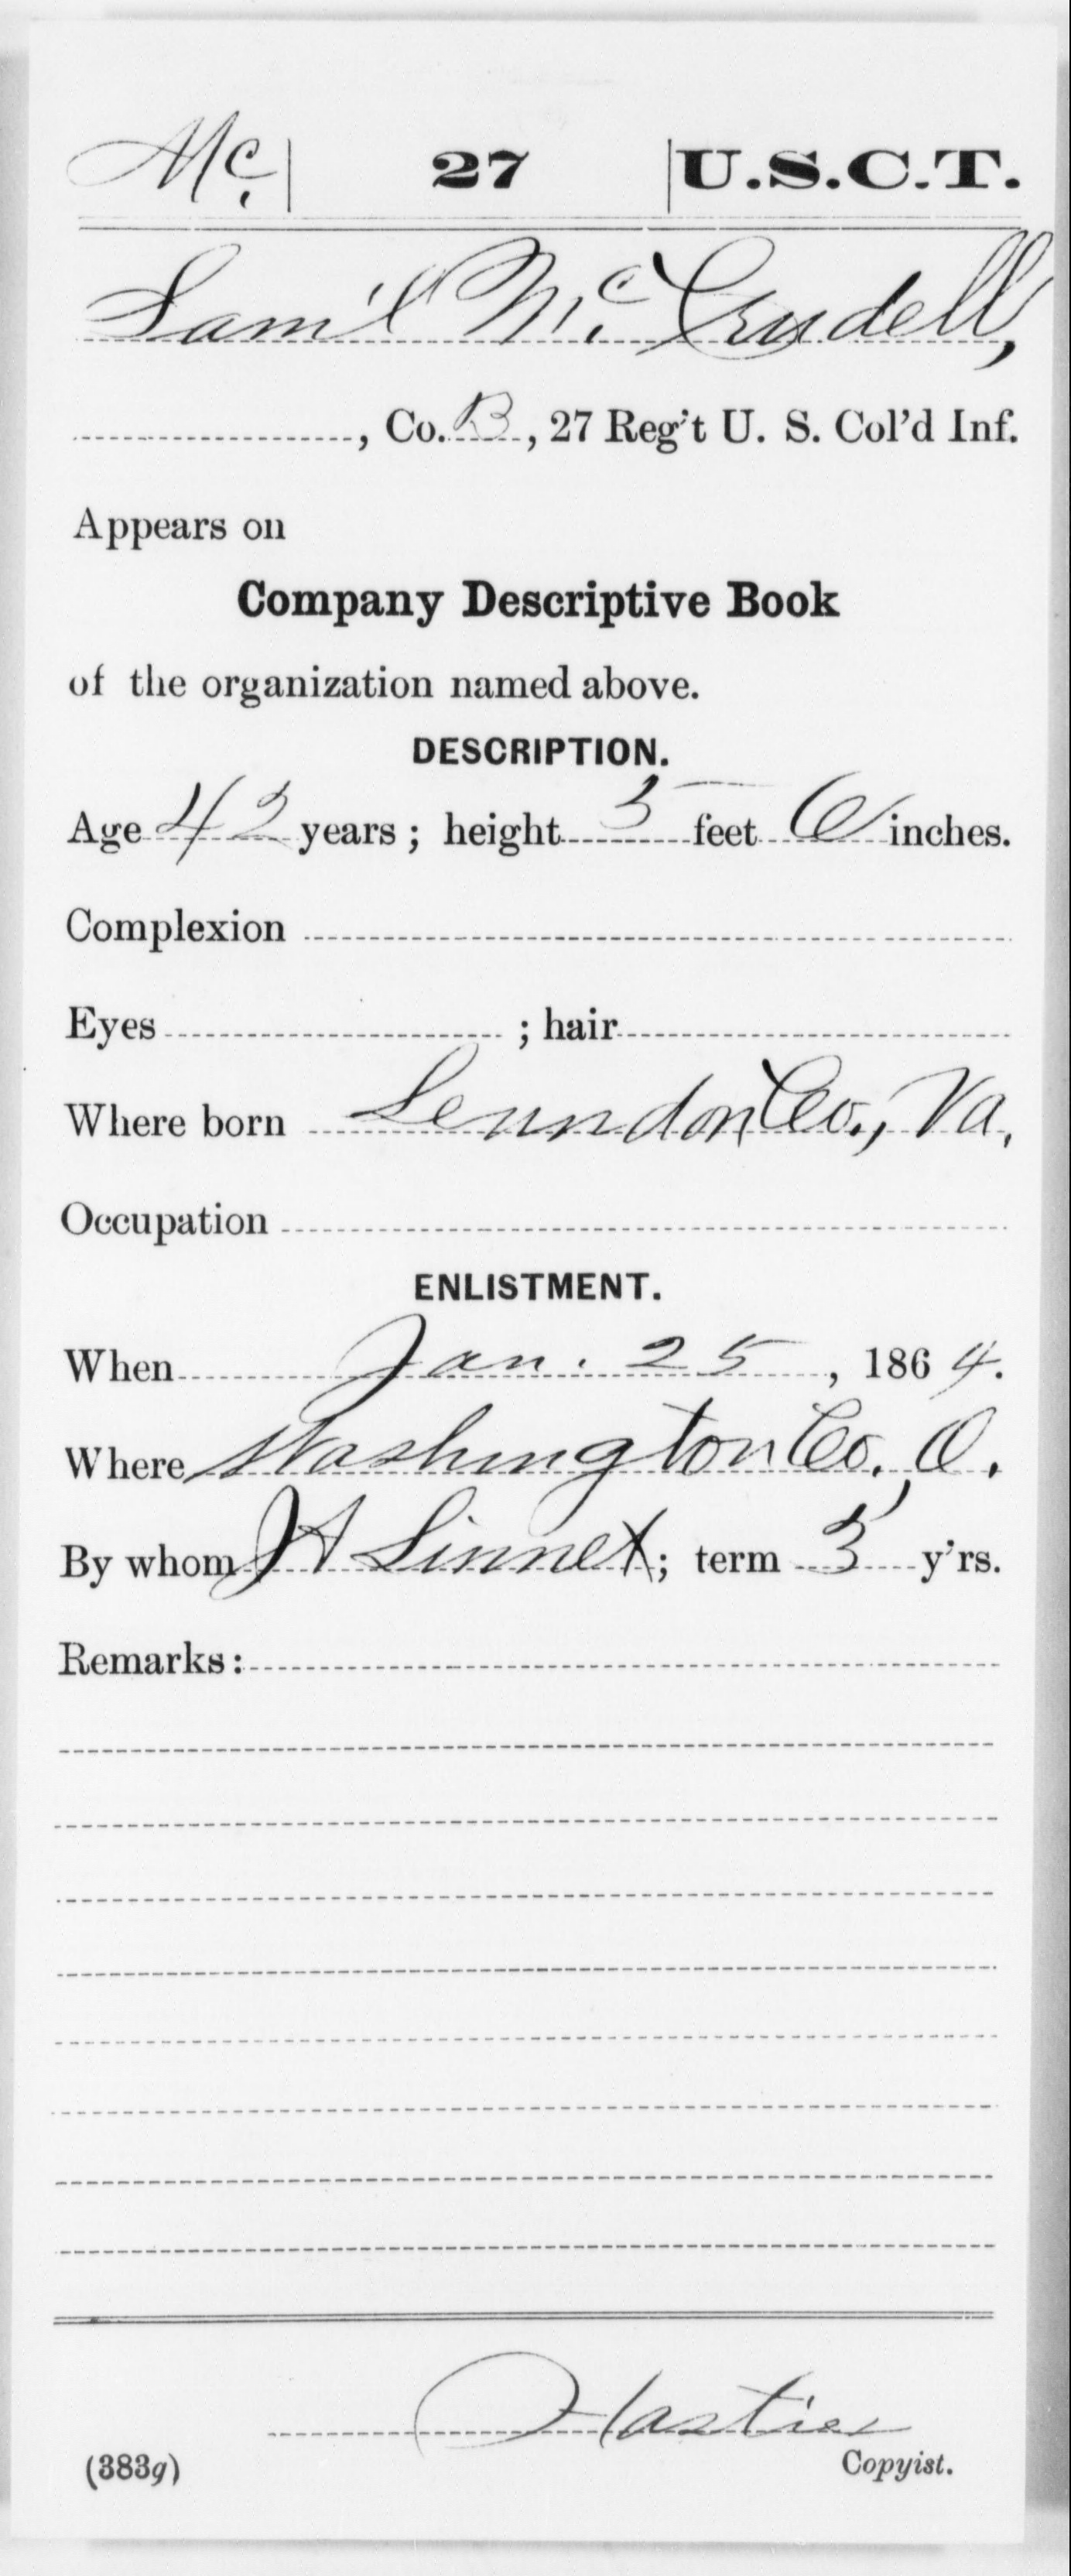 Mc. 27 U.S.C.T.
Sam'l McCrudell,
, Co. B, 27 Reg't U. S. Col'd Inf.
Appears on
Company Descriptive Book
of the organization named above.
DESCRIPTION.
Age 42 years; height 5 feet 6 inches.
Complexion
Eyes ; hair
Where born Lenndon Co., Va,
Occupation
ENLISTMENT.
When Jan. 25, 1864.
Where Washington Co., O.
By whom J A Linnet; term 3 y'rs.
Remarks:
Hastie
(383g) Copyist.